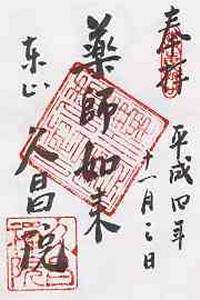 奉拝
平成四年
十一月二日
薬師如来
東山
久昌院